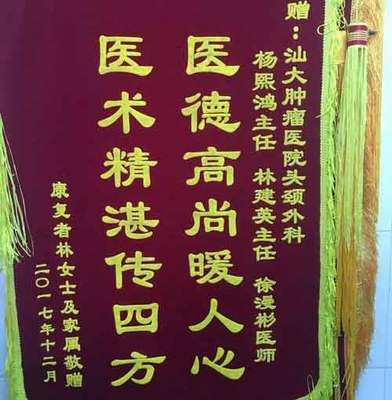 赠：汕大肿瘤医院头颈外科
杨熙鸿主任 林建英主任 徐漫彬医师
医德高尚暖人心
医术精湛传四方
康复者林女士及家属敬赠
二〇一七年十二月